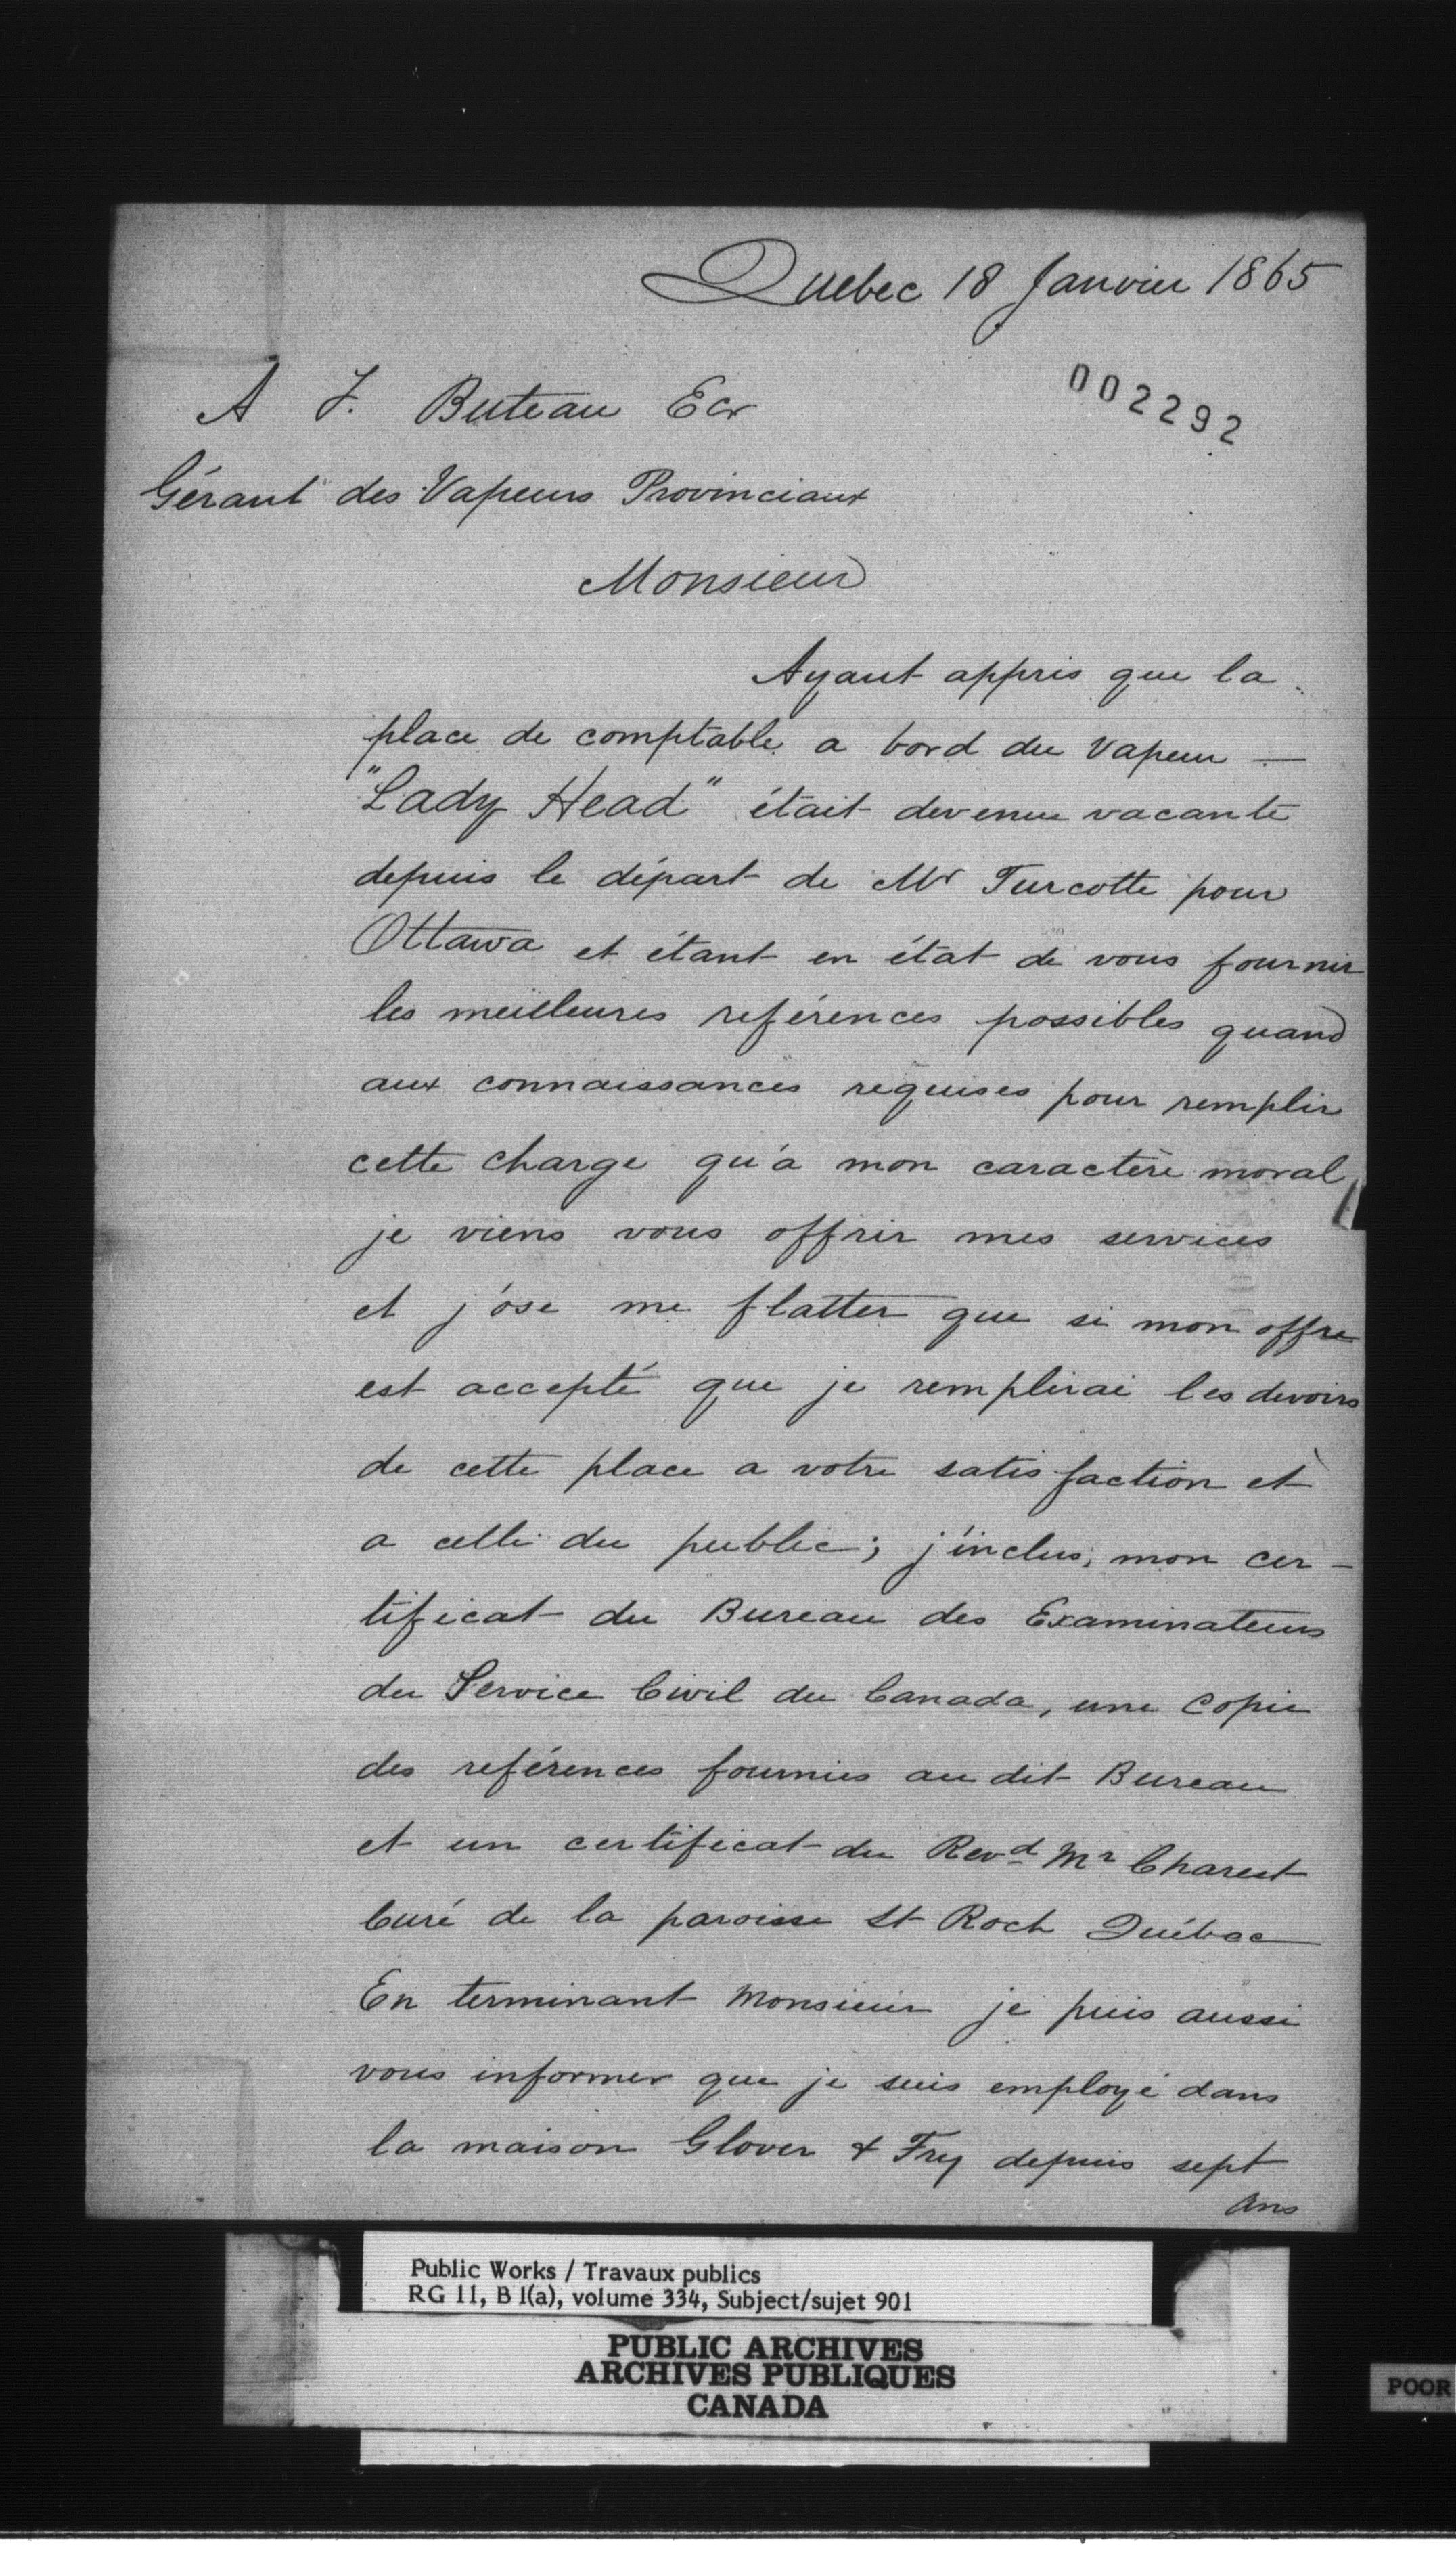 Quebec 18 Janvier 1865
002292
A F. Buteau Ecr
Gérant des Vapeurs Provinciaux
Monsieur
Ayant appris que la
place de comptable a bord du Vapeur —
"Lady Head" était devenue vacante
depuis le départ de Mr Turcotte pour
Ottawa et étant en état de vous fournir
les meilleures references possibles quand
aux connaissances requises pour remplir
cette charge qu'a mon caractère moral
je viens vous offrir mes services
et j'ose me flatter que si mon offre
est accepté que je remplirai les devoirs
de cette place a votre satisfaction et
a celle du public; j'inclus, mon cer-
tificat du Bureau des Examinateurs
du Service Civil du Canada, une Copie
des références fournies au dit Bureau
et un certificat du Revd Mr Charest
Curé de la paroisse St Roch Québec
En terminant Monsieur je puis aussi
vous informer que je suis employé dans
la maison Glover & Fry depuis sept
ans
Public Works / Travaux publics
RG 11, B 1(a), volume 334, Subject/sujet 901
PUBLIC ARCHIVES
ARCHIVES PUBLIQUES
CANADA
POOR